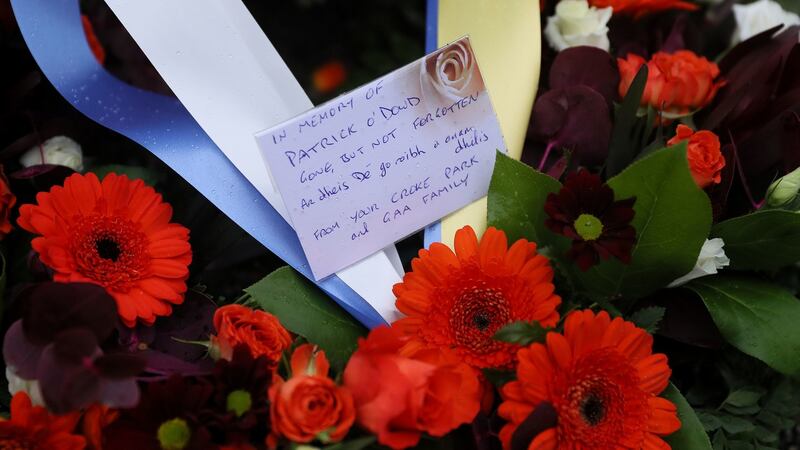 IN MEMORY OF
PATRICK O'DOWD
GONE, BUT NOT FORGOTTEN
Ar dheis Dé go raibh a anam dhelis
FROM YOUR CROKE PARK
and GAA FAMILY